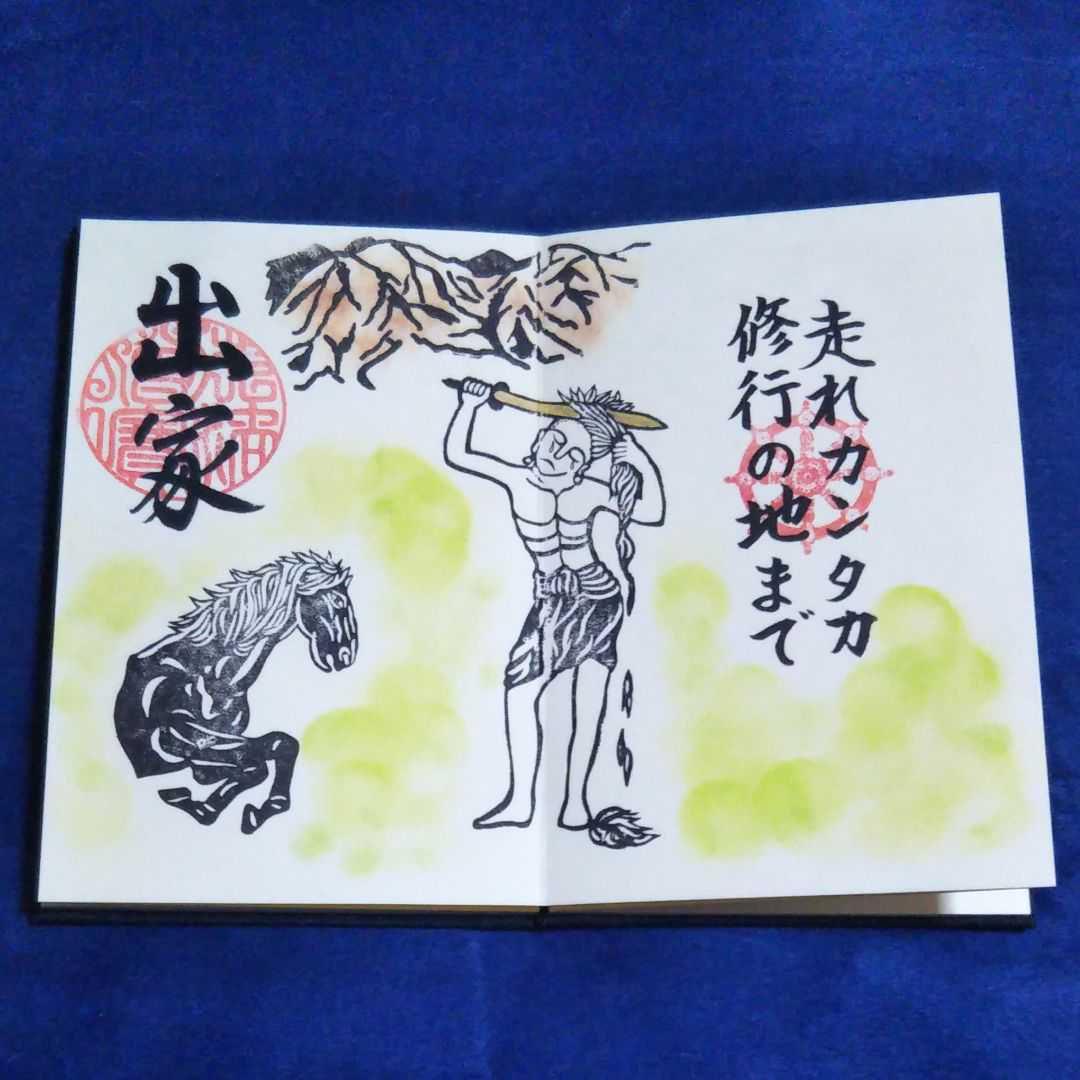 走れカンタカ
修行の地まで
出家